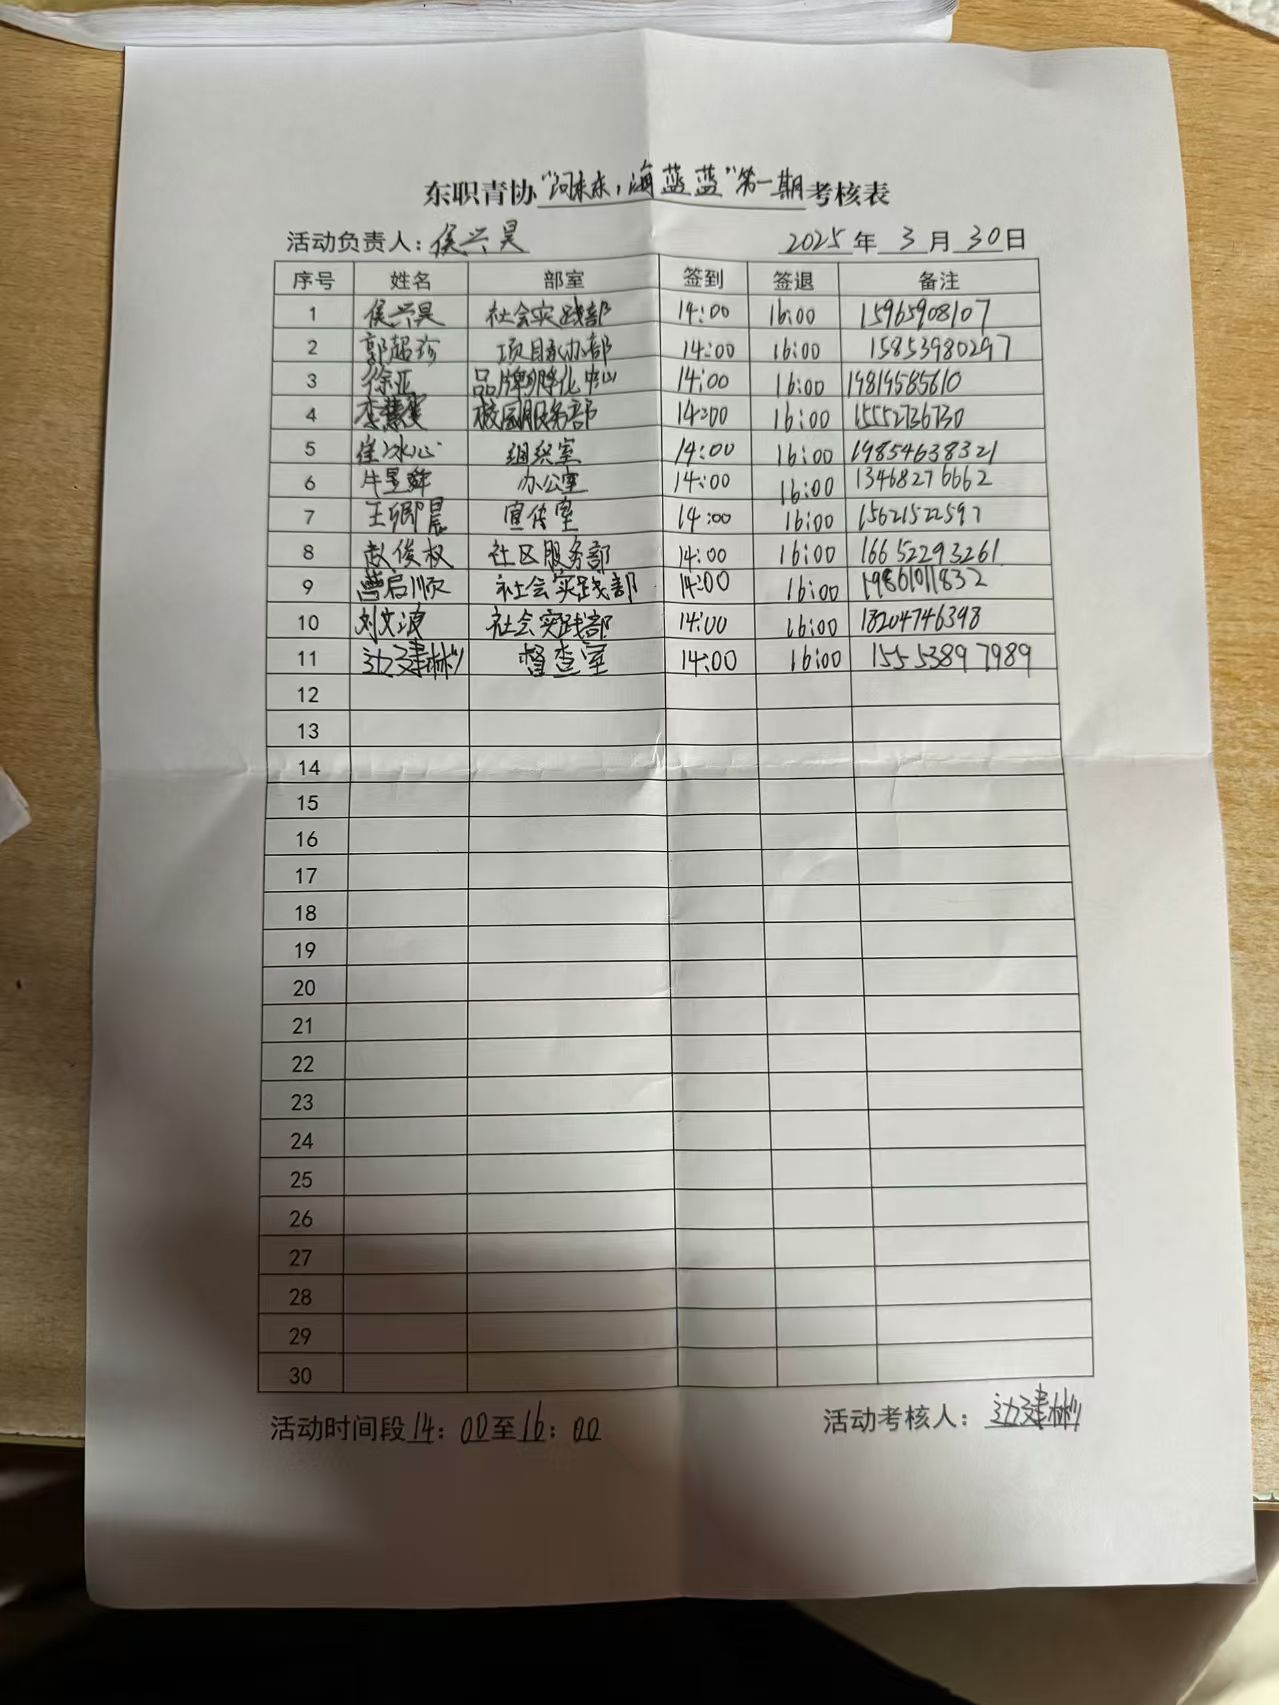 东职青协“河未来，海蓝蓝”第一期考核表
活动负责人：侯兴昊 2025年3月30日
序号 姓名 部室 签到 签退 备注
1 侯兴昊 社会实践部 14:00 16:00 15965908107
2 郭超珍 项目承办部 14:00 16:00 15853980297
3 徐亚 品牌孵化中心 14:00 16:00 19819585610
4 李慧雯 校园服务部 14:00 16:00 15552736730
5 崔冰心 组织室 14:00 16:00 19854638321
6 牛昱舜 办公室 14:00 16:00 13468276662
7 王卿晨 宣传室 14:00 16:00 15621522597
8 赵俊权 社区服务部 14:00 16:00 16652293261
9 启顺 社会实践部 14:00 16:00 19861011832
10 刘文浪 社会实践部 14:00 16:00 13204746398
11 边建彬 督查室 14:00 16:00 15553897989
12
13
14
15
16
17
18
19
20
21
22
23
24
25
26
27
28
29
30
活动时间段14：00至16：00 活动考核人：边建彬